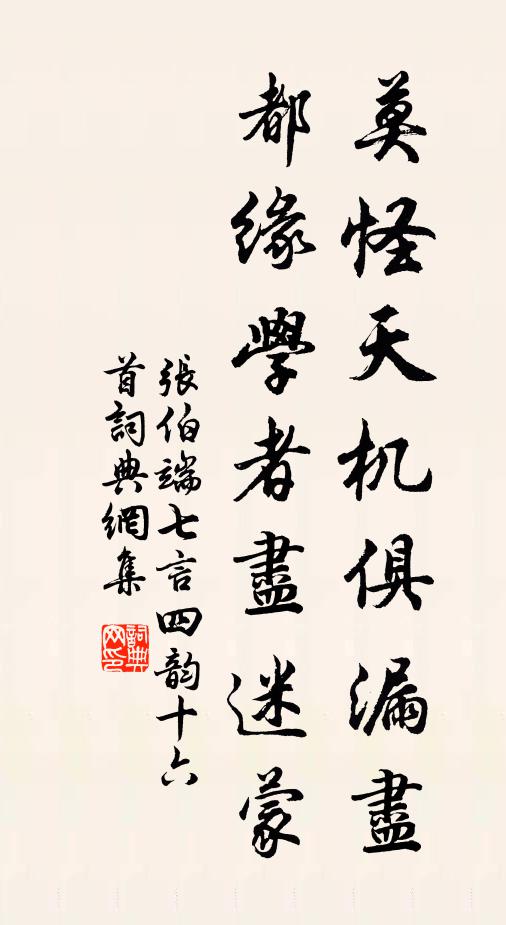 莫怪天机俱漏盡
都緣學者盡迷蒙
張伯端七言四韵十六
首詞典網集
詞典
网印